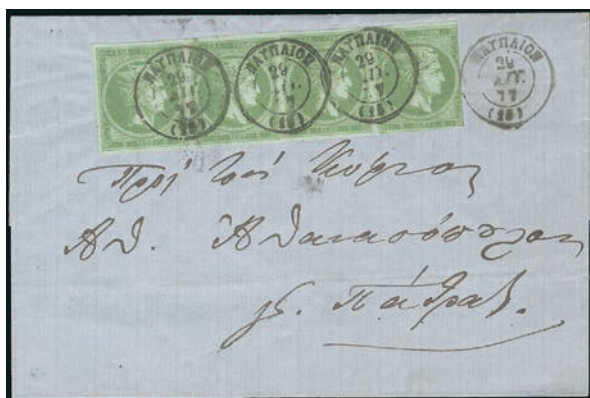 ΝΑΥΠΛΙΟΝ
29
77
(16)
ΝΑΥΠΛΙΟΝ
29
(16)
ΝΑΥΠΛΙΟΝ
29
(16)
ΝΑΥΠΛΙΟΝ
29
ΑΥΓ.
77
(16)
Πρός τόν Κύριον
Αθ. Αθανασόπουλον
Πάτρας.